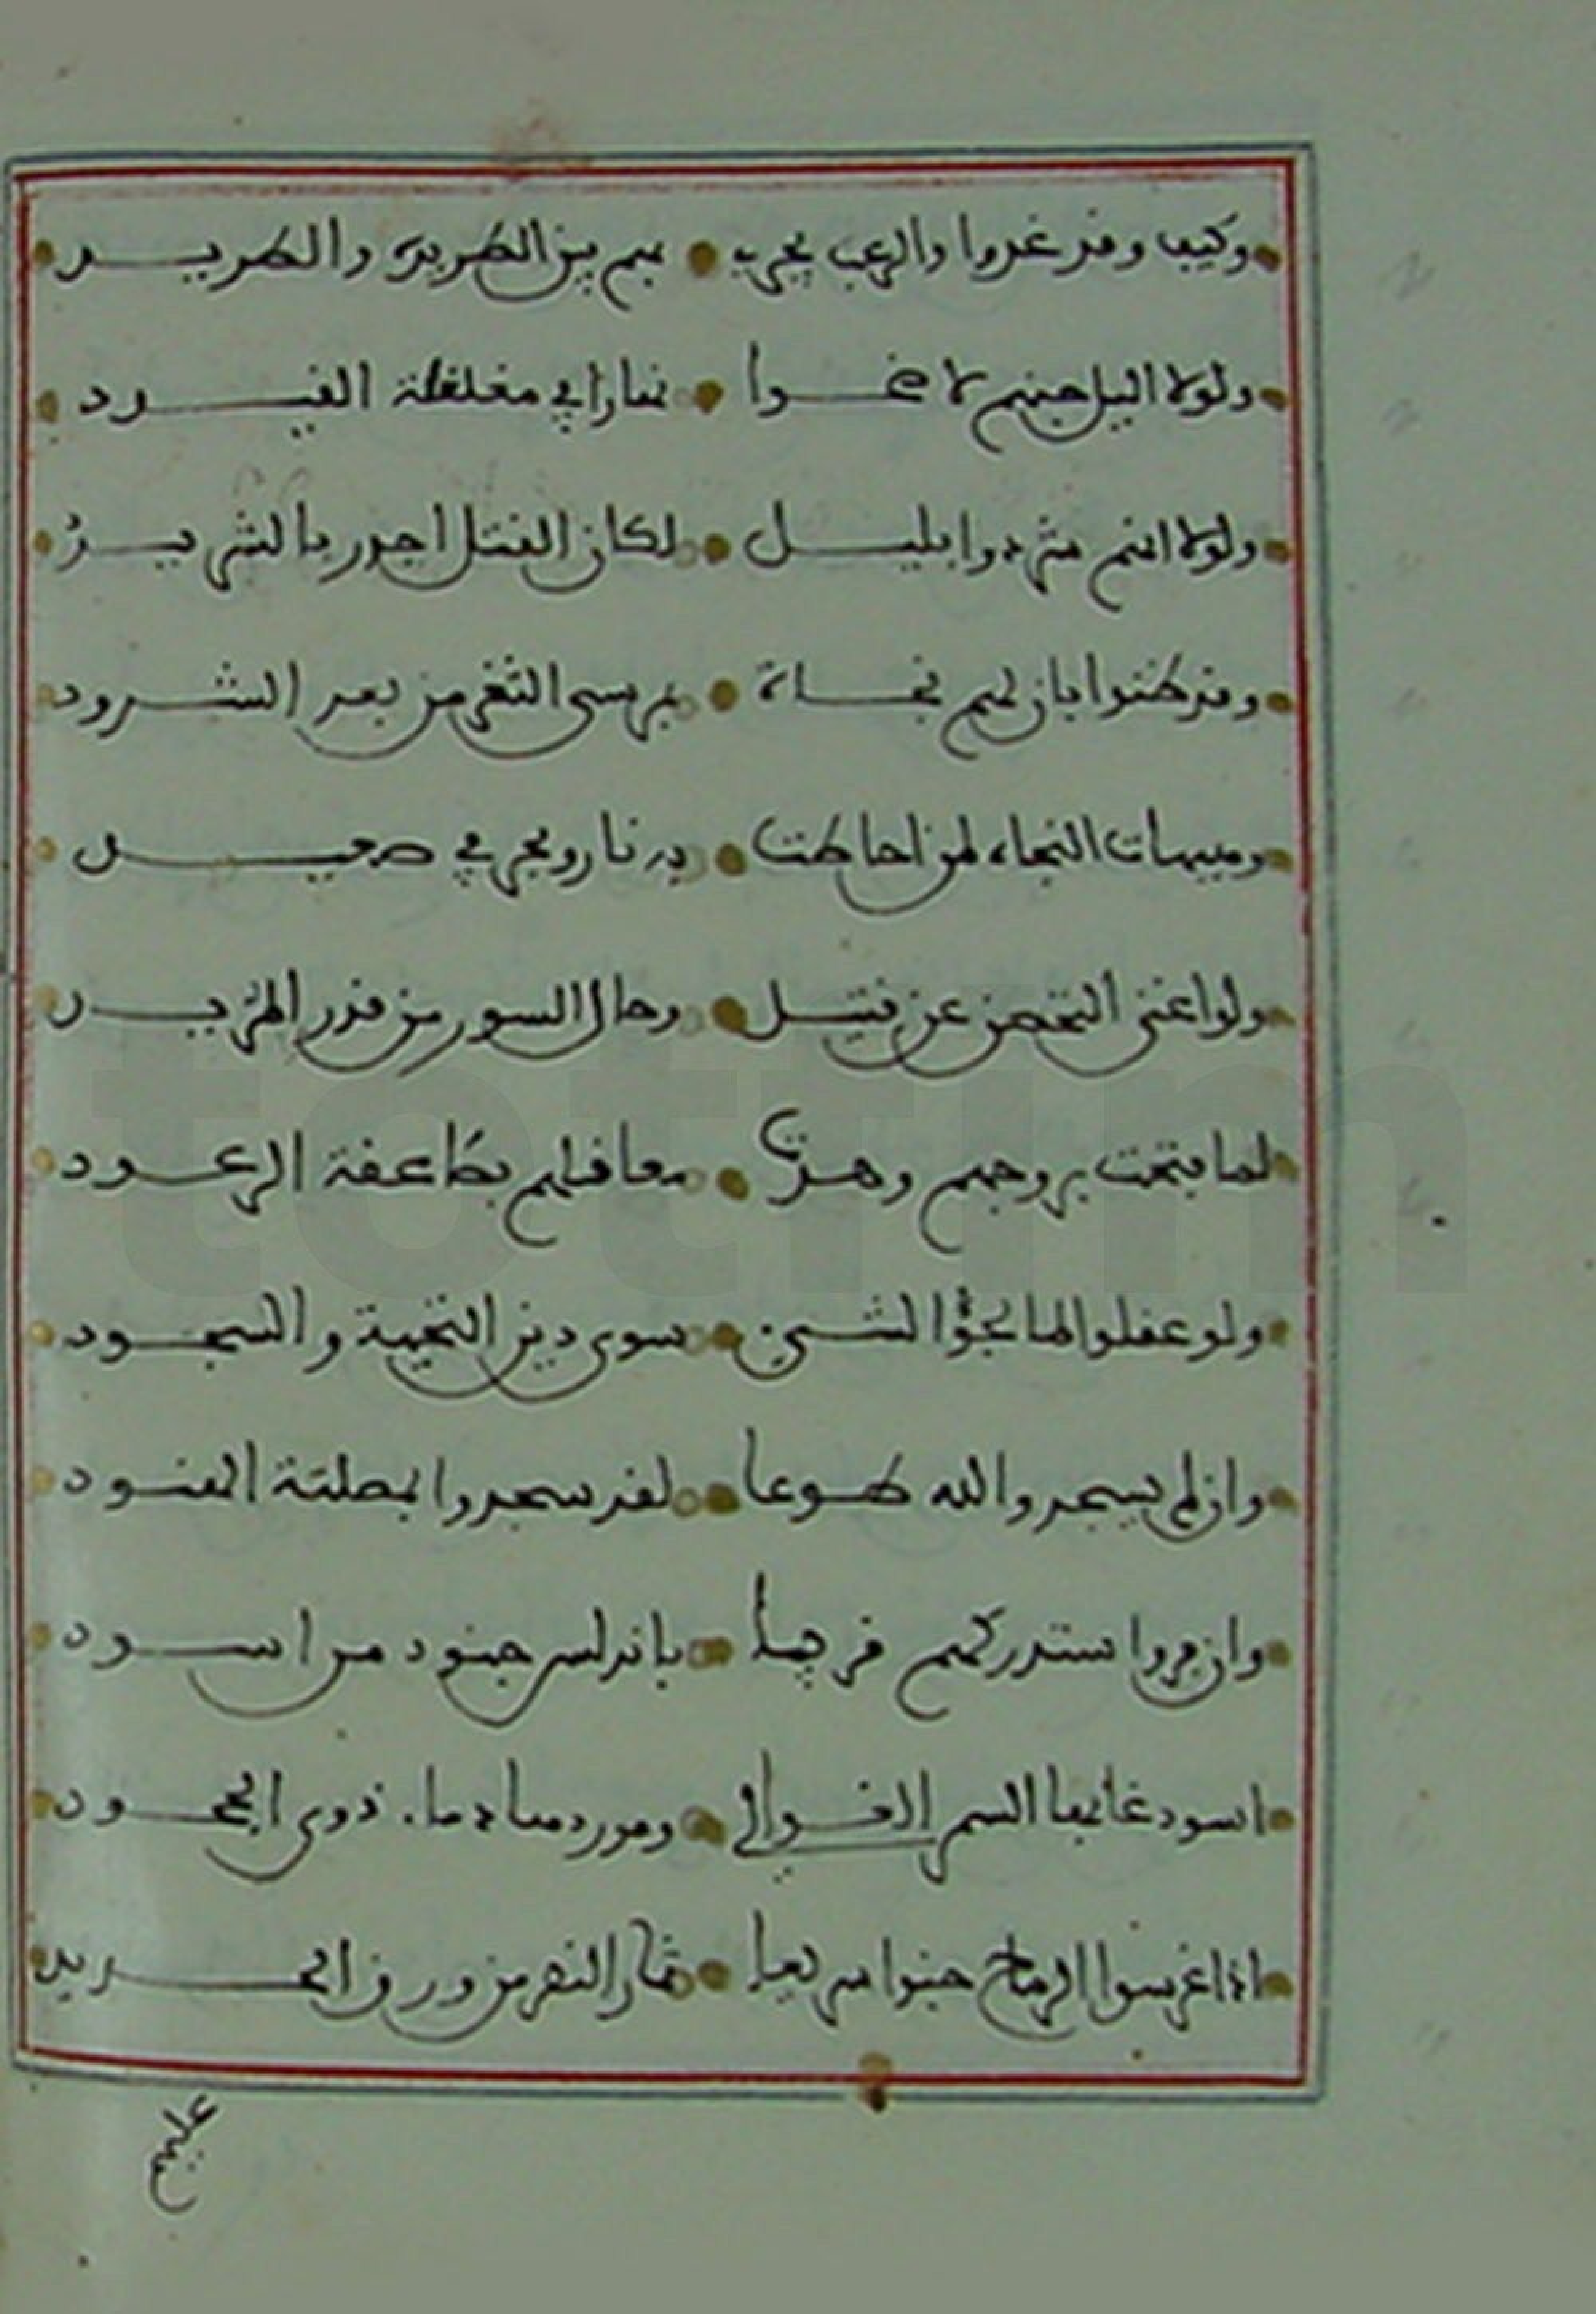 وكيف وقد غدوا والرعب يجري بهم بين الطريدة والطريد
ولولا اليل جنهم لاضحوا نهارا في مغلغلة القيود
ولولا انهم شردوا بليل لكان القتل اجدر بالشريد
وقد ظنوا بان لهم نجاة بمرسى الثغر من بعد الشرود
وهيهات النجاء لمن احاطت به نار وبحر في صعيد
ولو اغنى التحصن عن قتيل وحال السور من قدر المريد
لما فتحت بروجهم وهدت معاقلهم بصاعقة الرعود
ولو عقلوا لما لجؤا لشيء سوى دين التحية والسجود
وان لم يسجدوا لله طوعا لقد سجدوا لمصلتة الهنود
وان فروا ستدركهم قريبا باندلس جنود من اسود
اسود غابها السمر العوالي ومورد دماء ذوي الجحود
اذا غرسوا الرماح جنوا سريعا ثمار النصر من ورق الحديد
عليهم
totfim